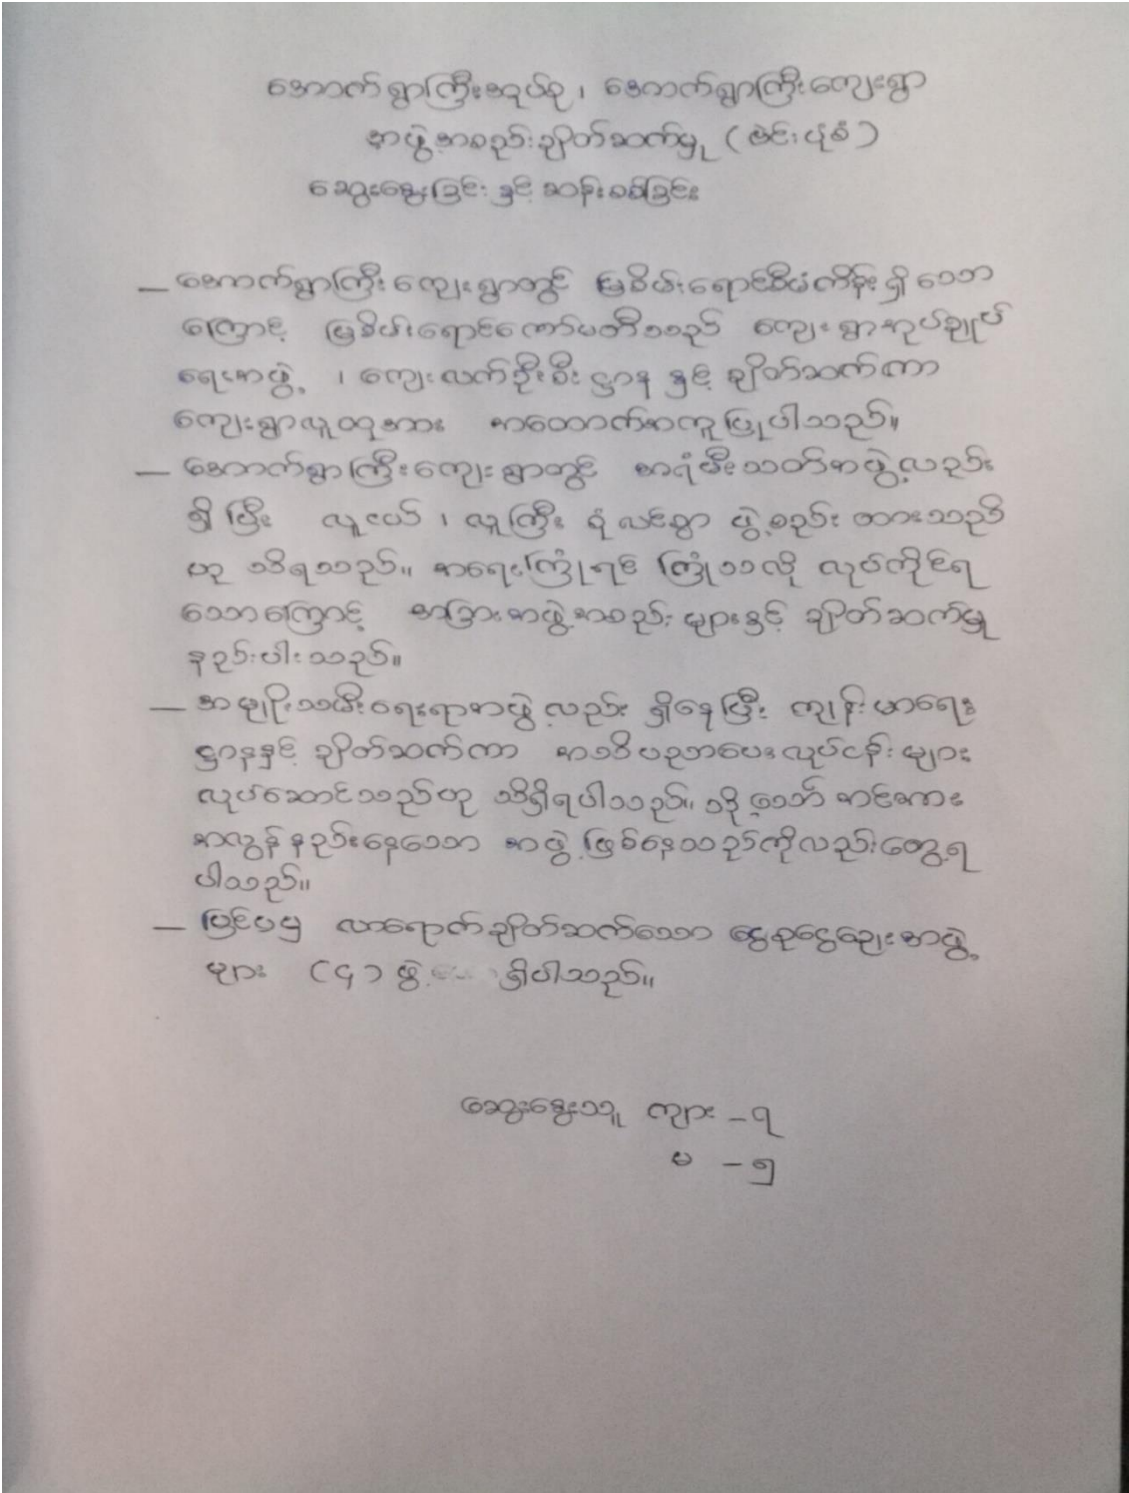 အောက်ရွာကြီးအုပ်စု ၊ အောက်ရွာကြီးကျေးရွာ
အဖွဲ့အစည်းချိတ်ဆက်မှု ( ဗင်းပုံစံ )
ဆွေးနွေးခြင်း နှင့် ဆန်းစစ်ခြင်း
– အောက်ရွာကြီးကျေးရွာတွင် မြစိမ်းရောင်စီမံကိန်းရှိသော
ကြောင့် မြစိမ်းရောင်ကော်မတီသည် ကျေးရွာအုပ်ချုပ်
ရေးအဖွဲ့ ၊ ကျေးလက်ဦးစီးဌာန နှင့် ချိတ်ဆက်ကာ
ကျေးရွာလူထုအား အထောက်အကူပြုပါသည်။
– အောက်ရွာကြီးကျေးရွာတွင် အရံမီးသတ်အဖွဲ့လည်း
ရှိပြီး လူငယ် ၊ လူကြီး စုံလင်စွာ ဖွဲ့စည်းထားသည်
ဟု သိရသည်။ အရေးကြုံရင် ကြုံသလို လုပ်ကိုင်ရ
သောကြောင့် အခြားအဖွဲ့အစည်းများနှင့် ချိတ်ဆက်မှု
နည်းပါးသည်။
– အမျိုးသမီးရေးရာအဖွဲ့လည်း ရှိနေပြီး ကျန်းမာရေး
ဌာနနှင့် ချိတ်ဆက်ကာ အသိပညာပေးလုပ်ငန်းများ
လုပ်ဆောင်သည်ဟု သိရှိရပါသည်။ သို့သော် အင်အား
အလွန်နည်းနေသော အဖွဲ့ဖြစ်နေသည်ကိုလည်းတွေ့ရ
ပါသည်။
– ပြင်ပမှ လာရောက်ချိတ်ဆက်သော ငွေစုငွေချေးအဖွဲ့
များ (၄) ဖွဲ့ ရှိပါသည်။
ဆွေးနွေးသူ ကျား – ၇
မ – ၅